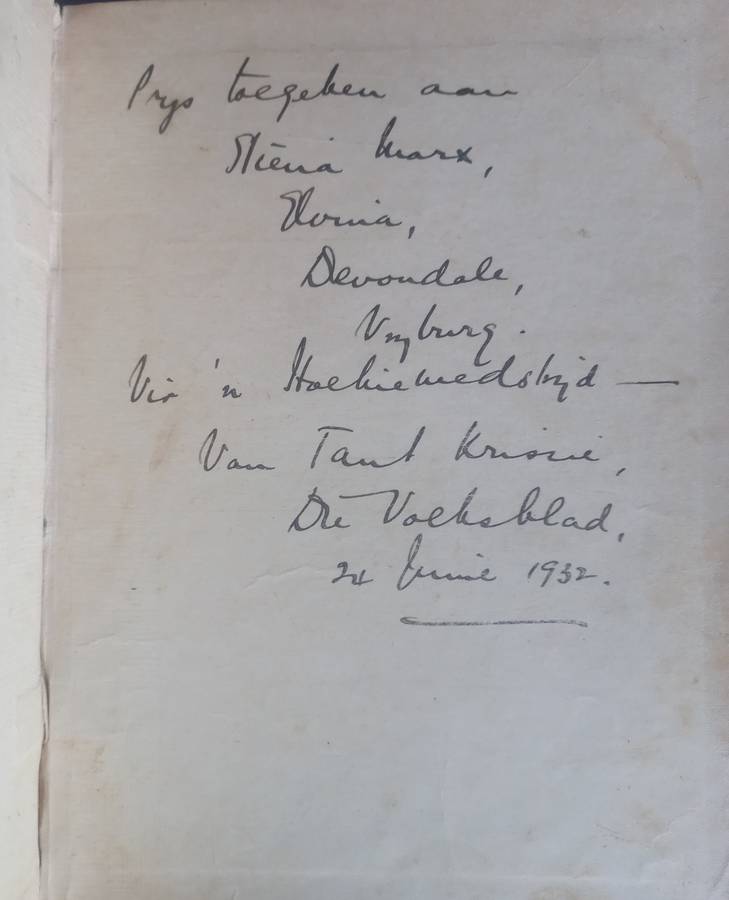 Prys toegeken aan
Stienia Marx,
Devondale,
Vryburg.
Vir 'n Hoekiewedstryd —
Van Tant Krissie,
Die Volksblad,
24 Junie 1932.